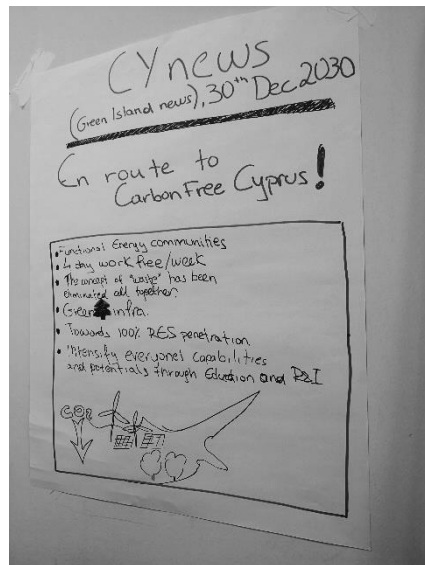 CYnews
(Green Island news), 30th Dec 2030
En route to
Carbon Free Cyprus!
• Functional Energy communities
• 4 day work free/week
• The concept of "waste" has been
eliminated all together?
• Green infra.
• Towards 100% RES penetration
• Intensify everyone's capabilities
and potentials through Education and R&I
CO2